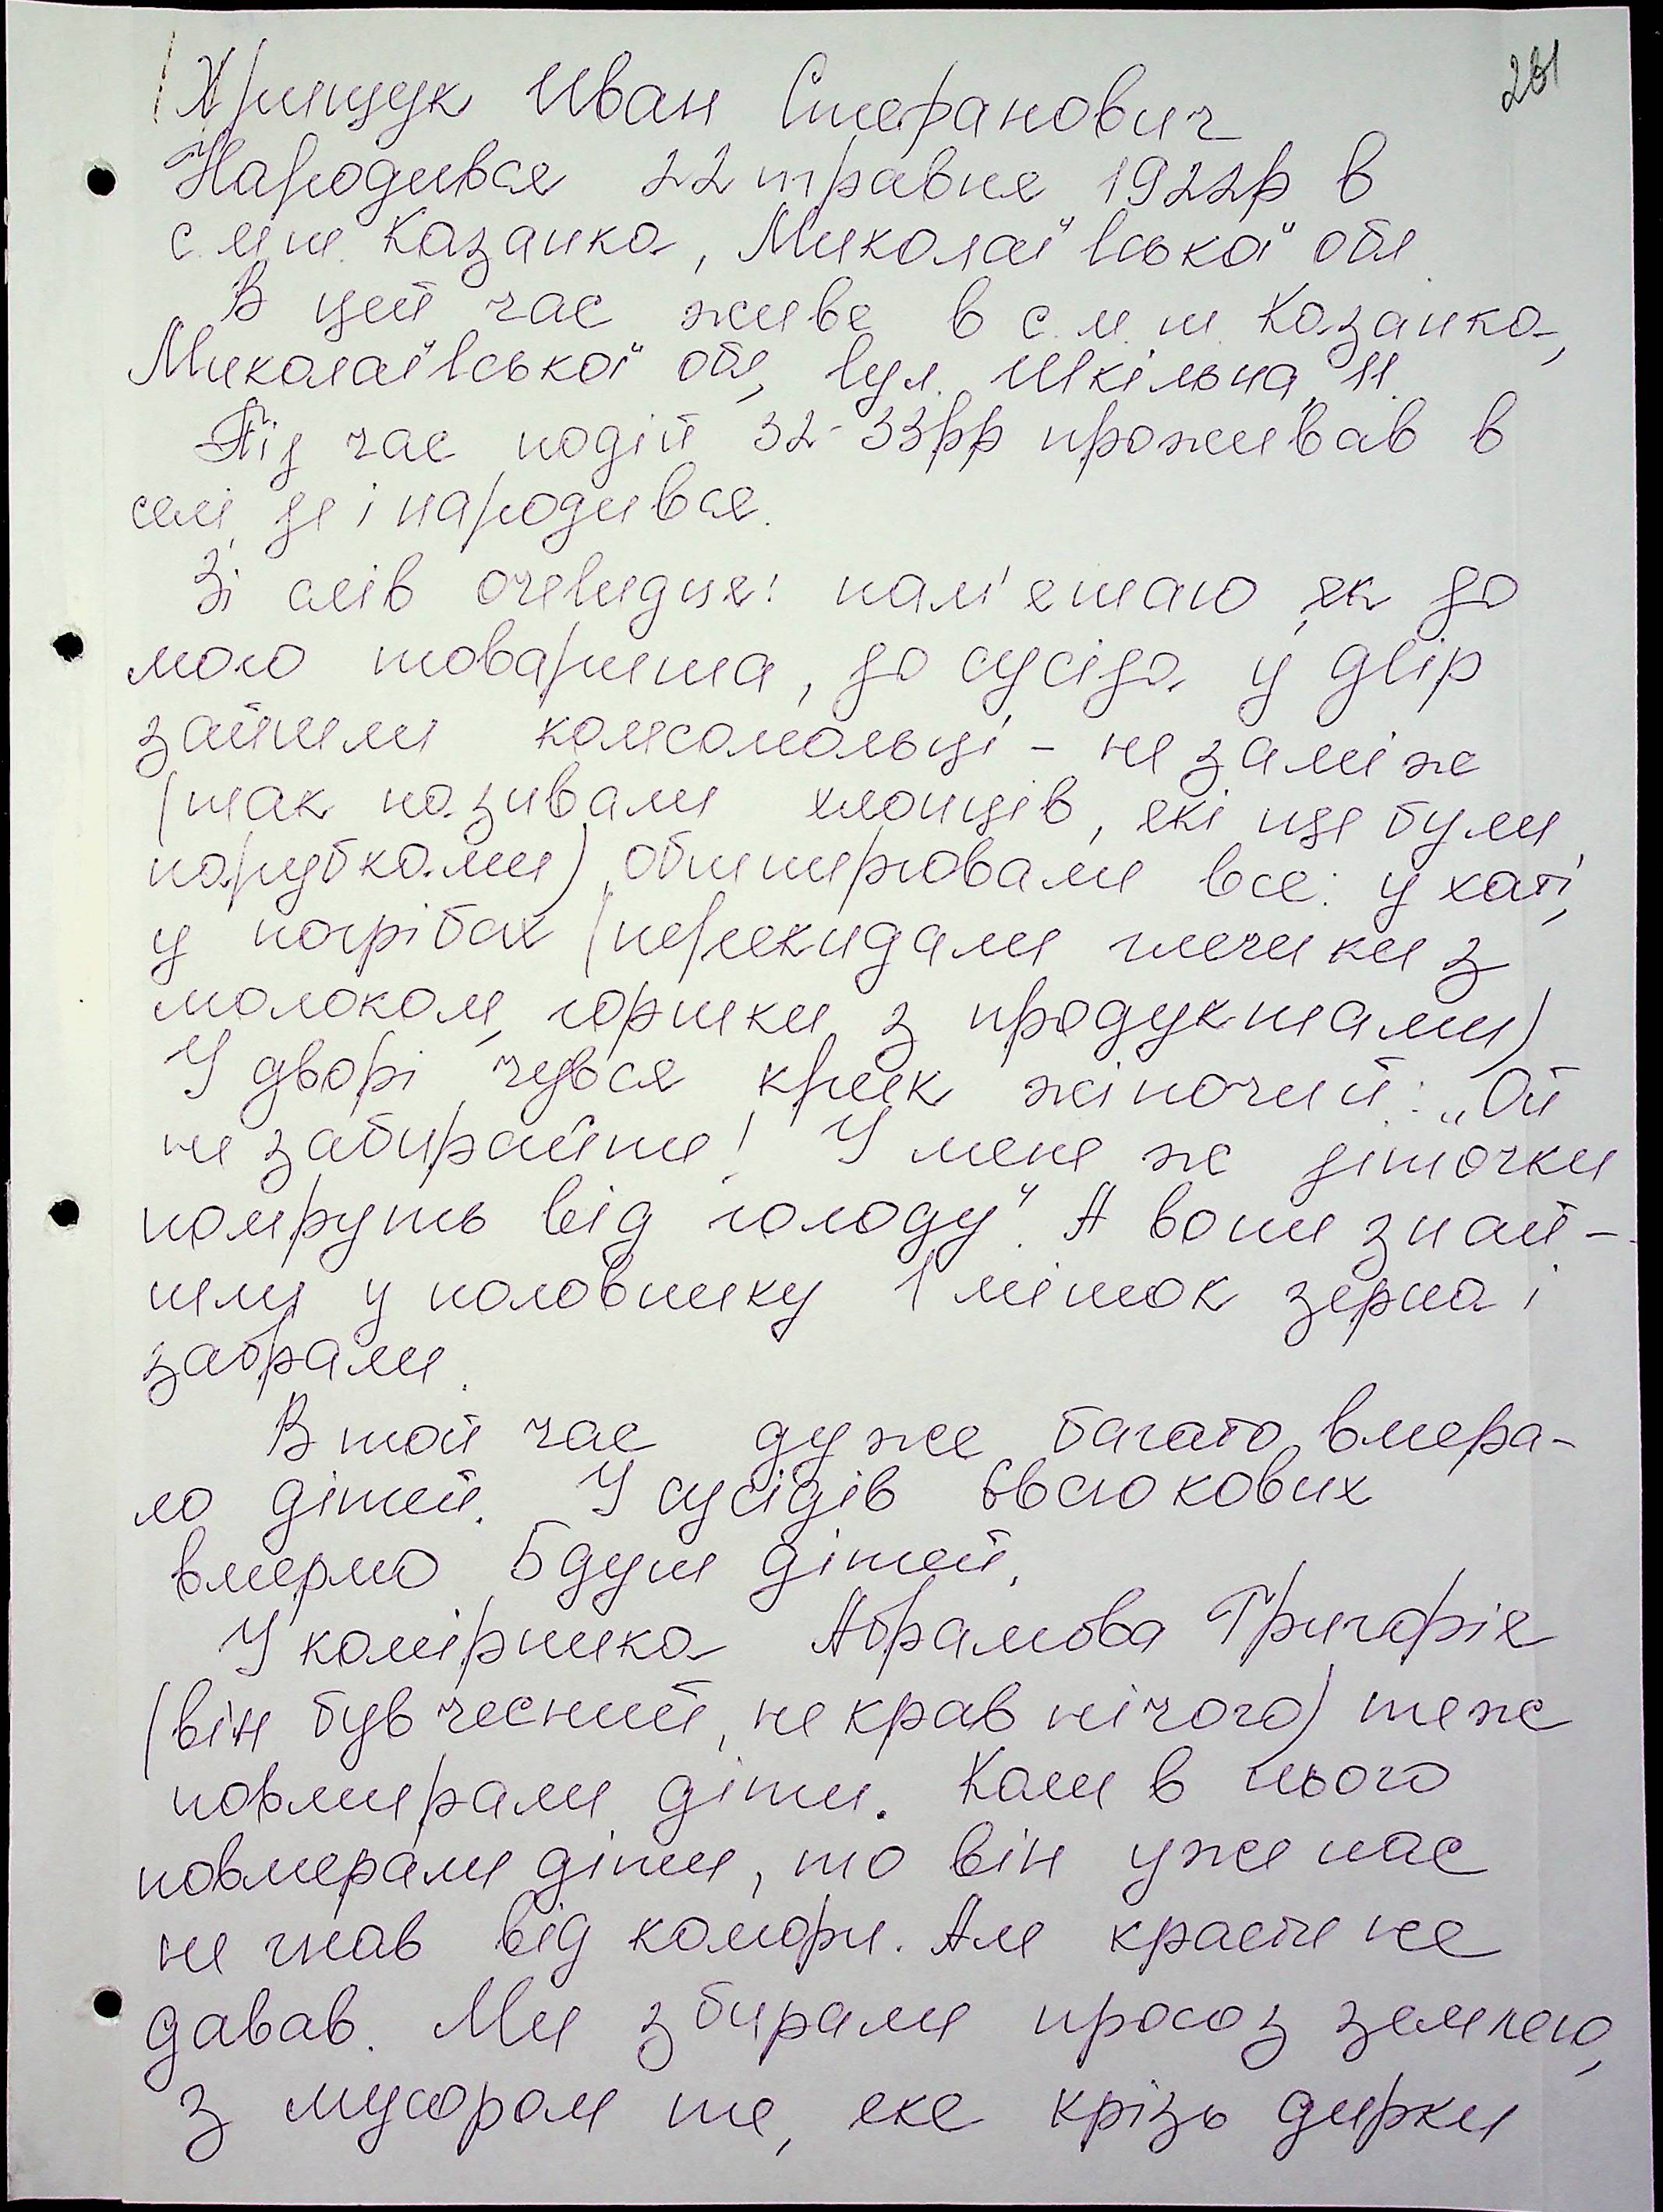 261
Хрищук Иван Стефанович
Народився 22 травня 1922р в
с.м.т. Казанка, Миколаївської обл.
В цей час живе в с.м.т. Казанка,
Миколаївської обл, вул. Шкільна, 11.
Під час подій 32-33рр проживав в
селі, де і народився.
Зі слів очевидця: пам'ятаю, як до
мого товариша, до сусіда, у двір
зайшли комсомольці - не заміж
(так називали хлопців, які ще були
парубками), обшнирювали все: у хаті,
у погрібах (перекидали глечики з
молоком, горшки з продуктами)
У дворі чувся крик жіночий: „Ой
не забирайте! У мене ж діточки
помруть від голоду". А вони знай-
шли у половнику 1 мішок зерна і
забрали.
В той час дуже багато вмера-
ло дітей. У сусідів Євсюкових
вмерло 5 душ дітей.
У комірника Абрамова Григорія
(він був чесний, не крав нічого) теж
повмирали діти. Коли в нього
повмерали діти, то він уже нас
не гнав від комори. Але красти не
давав. Ми збирали просо з землею,
з мусором те, яке крізь дирки